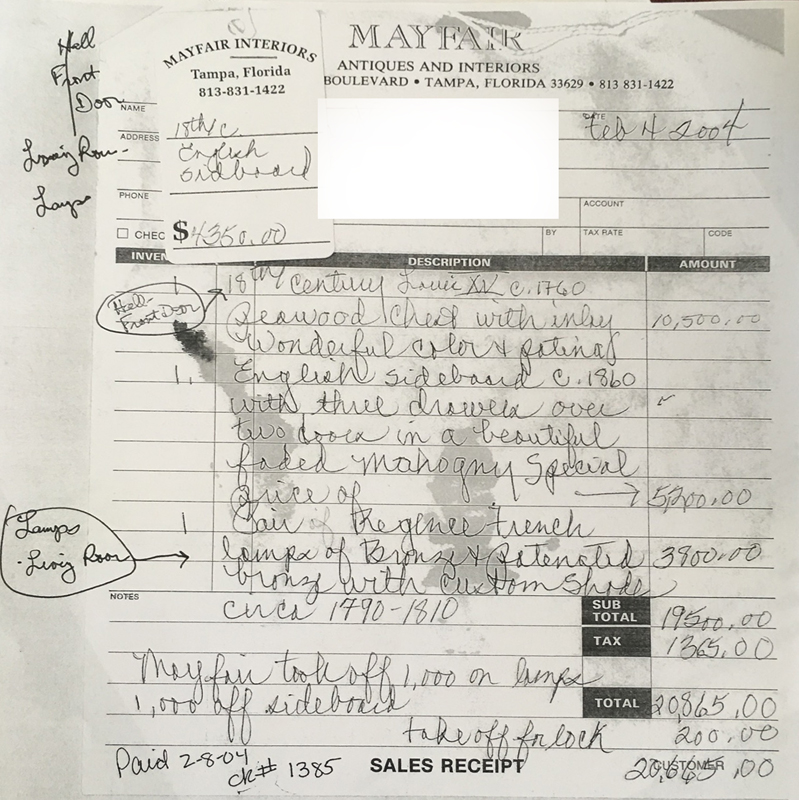 Hall
Front
Door
Living Room
Lamps
MAYFAIR INTERIORS
Tampa, Florida
813-831-1422
18th c.
English
sidboard
$4350.00
MAYFAIR
ANTIQUES AND INTERIORS
BOULEVARD • TAMPA, FLORIDA 33629 • 813 831-1422
NAME
DATE
Feb 4 2004
ADDRESS
PHONE
ACCOUNT
CHEC
BY
TAX RATE
CODE
INVEN
DESCRIPTION
AMOUNT
1 18th century Louis XV c. 1760
Hall-
Front Door
Rosewood chest with inlay 10,500.00
Wonderful color & patina
1. English sideboard c. 1860
with three drawers over
two doors in a beautiful
faded Mahogny Special
price of → 5,200.00
1 Pair of Regence French
Lamps
- Living Room
lamps of Bronze & patenated 3800.00
bronze with custom shade
NOTES
circa 1790-1810
SUB TOTAL 19500.00
TAX 1365.00
Mayfair took off 1,000 on lamps
1,000 off sideboard
TOTAL 20,865.00
take off for lock 200.00
Paid 2-8-04
ck# 1385
SALES RECEIPT
CUSTOMER
20,665.00